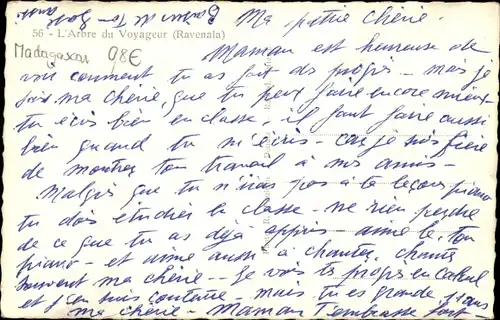 Baisers de Ton
Ma petite chérie.
56 - L'Arbre du Voyageur (Ravenala)
Madagascar 0,8€
Maman est heureuse de
voir comment tu as fait des progrès - mais je
sais ma chérie, que tu peux faire encore mieux
tu écris bien en classe - il faut faire aussi
bien quand tu m'écris - car je suis fière
de montrer ton travail à nos amis -
Malgré que tu n'iras pas à ta leçon piano
tu dois étudier la classe - ne rien perdre
de ce que tu as déjà appris - aime le, ton
piano - et aime aussi à chanter, chante
souvent ma chérie - Je vois tes progrès en calcul
et j'en suis contente - mais tu es grande, 11 ans
ma chérie - Maman t'embrasse fort -